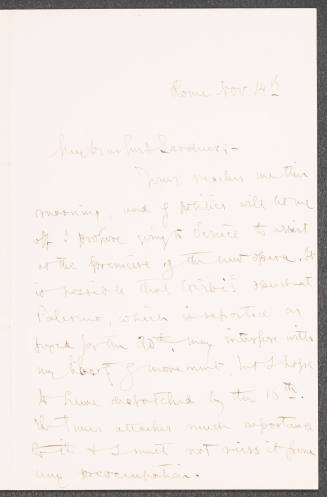 Rome Nov 14th
My dear Mrs Gardner,-
Yours reaches me this
morning, and if politics will let me
off I propose going to Venice to assist
at the première of the new opera. It
is possible that Crispi's speech at
Palermo, which is reported as
fixed for the 20th, may interfere with
my liberty of movement, but I hope
to have despatched by the 15th.
The Times attaches much importance
to it & I must not miss it from
any preoccupation.